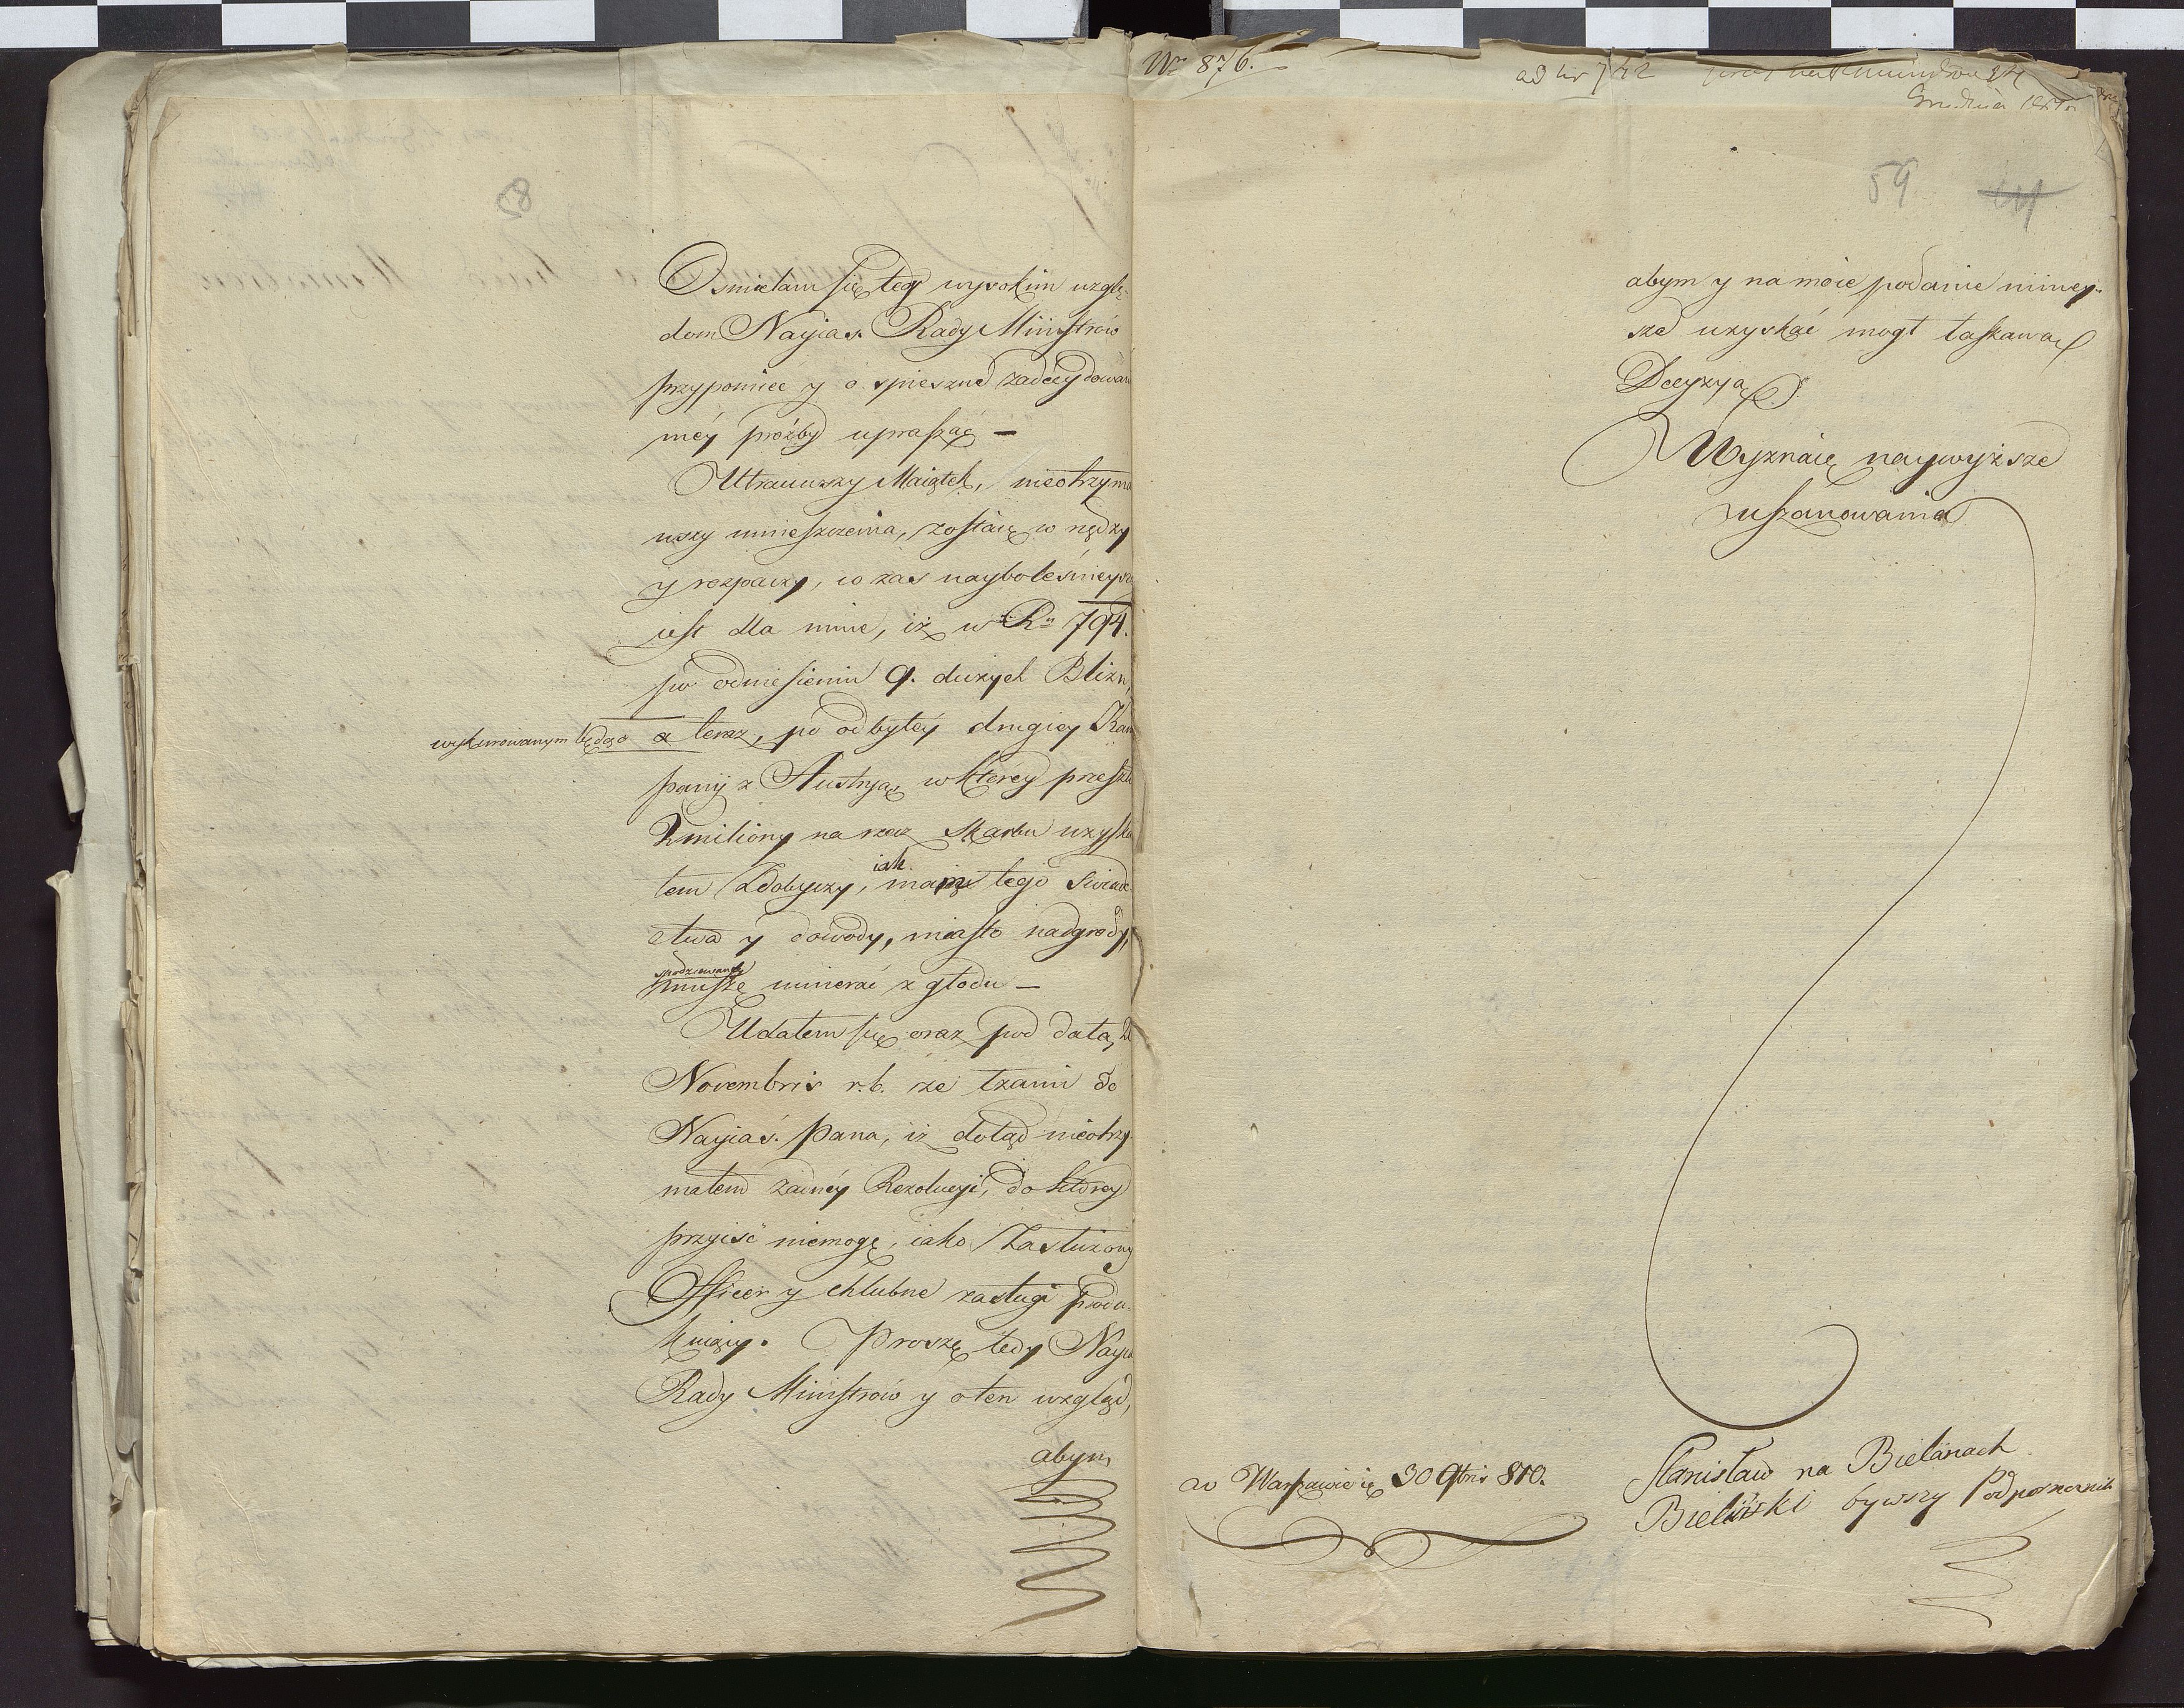 Osmielam się tedy wysokim wzglę-
dom Nayias. Rady Ministrow
przypomiec y o spieszne zadecydowa
méy prożby upraszać —
Utraciwszy Maiątek, nieotrzyma
wszy umieszczenia, zostaię w nędzy
y rozpaczy, co zas nayboleśnieysz
iest dla mnie, iż w Rū 794.
po odniesieniu 9. dużych Blizn,
wykurowanym będąc a teraz, po odbytéy drugiey Kam
panij z Austryą, w ktorey przeszł
2 miliony na rzecz Skarbu uzyska
łem Zdobyczy, iak tego swiade
ctwa y dowody, miasto nadgrody,
spodziewaney
muszę umierać z głodu —
Udałem się oraz pod datą
Novembris r. b. ze łzami do
Nayiaś. Pana, iż dotąd nieotrzy-
małem żadnéy Rezolucyi, do ktorey
przyiść niemogę, iako Zasłużony
Officer y chlubne zasługi produ-
kuiący. Proszę tedy Nayia
Rady Ministrow y o ten wzgląd,
abym
No 876.
ad nr 742
Grudnia
59
abym y na moie podanie niniey-
sze uzyskać mogł łaskawą
Decyzyą.
Wyznaię naywyższe
uszanowanie
w Warszawie ię 30 9bris 810.
Stanisław na Bielanach
Bieliński bywszy Podporucznik
58